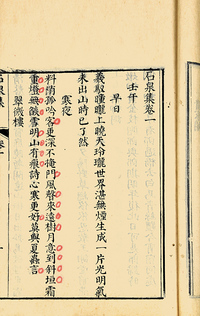 石泉集卷一
壬午
早日
羲馭曈曨上曉天玲瓏世界湛無煙生成一片光明氣
未出山時已了然
寒夜
料悄諍吟客更深不掩門風聲來遠樹月意到斜垣霜
重燈無燄雪明山有痕詩心寒更好莫與夏蟲言
翠微樓
石泉集 卷一